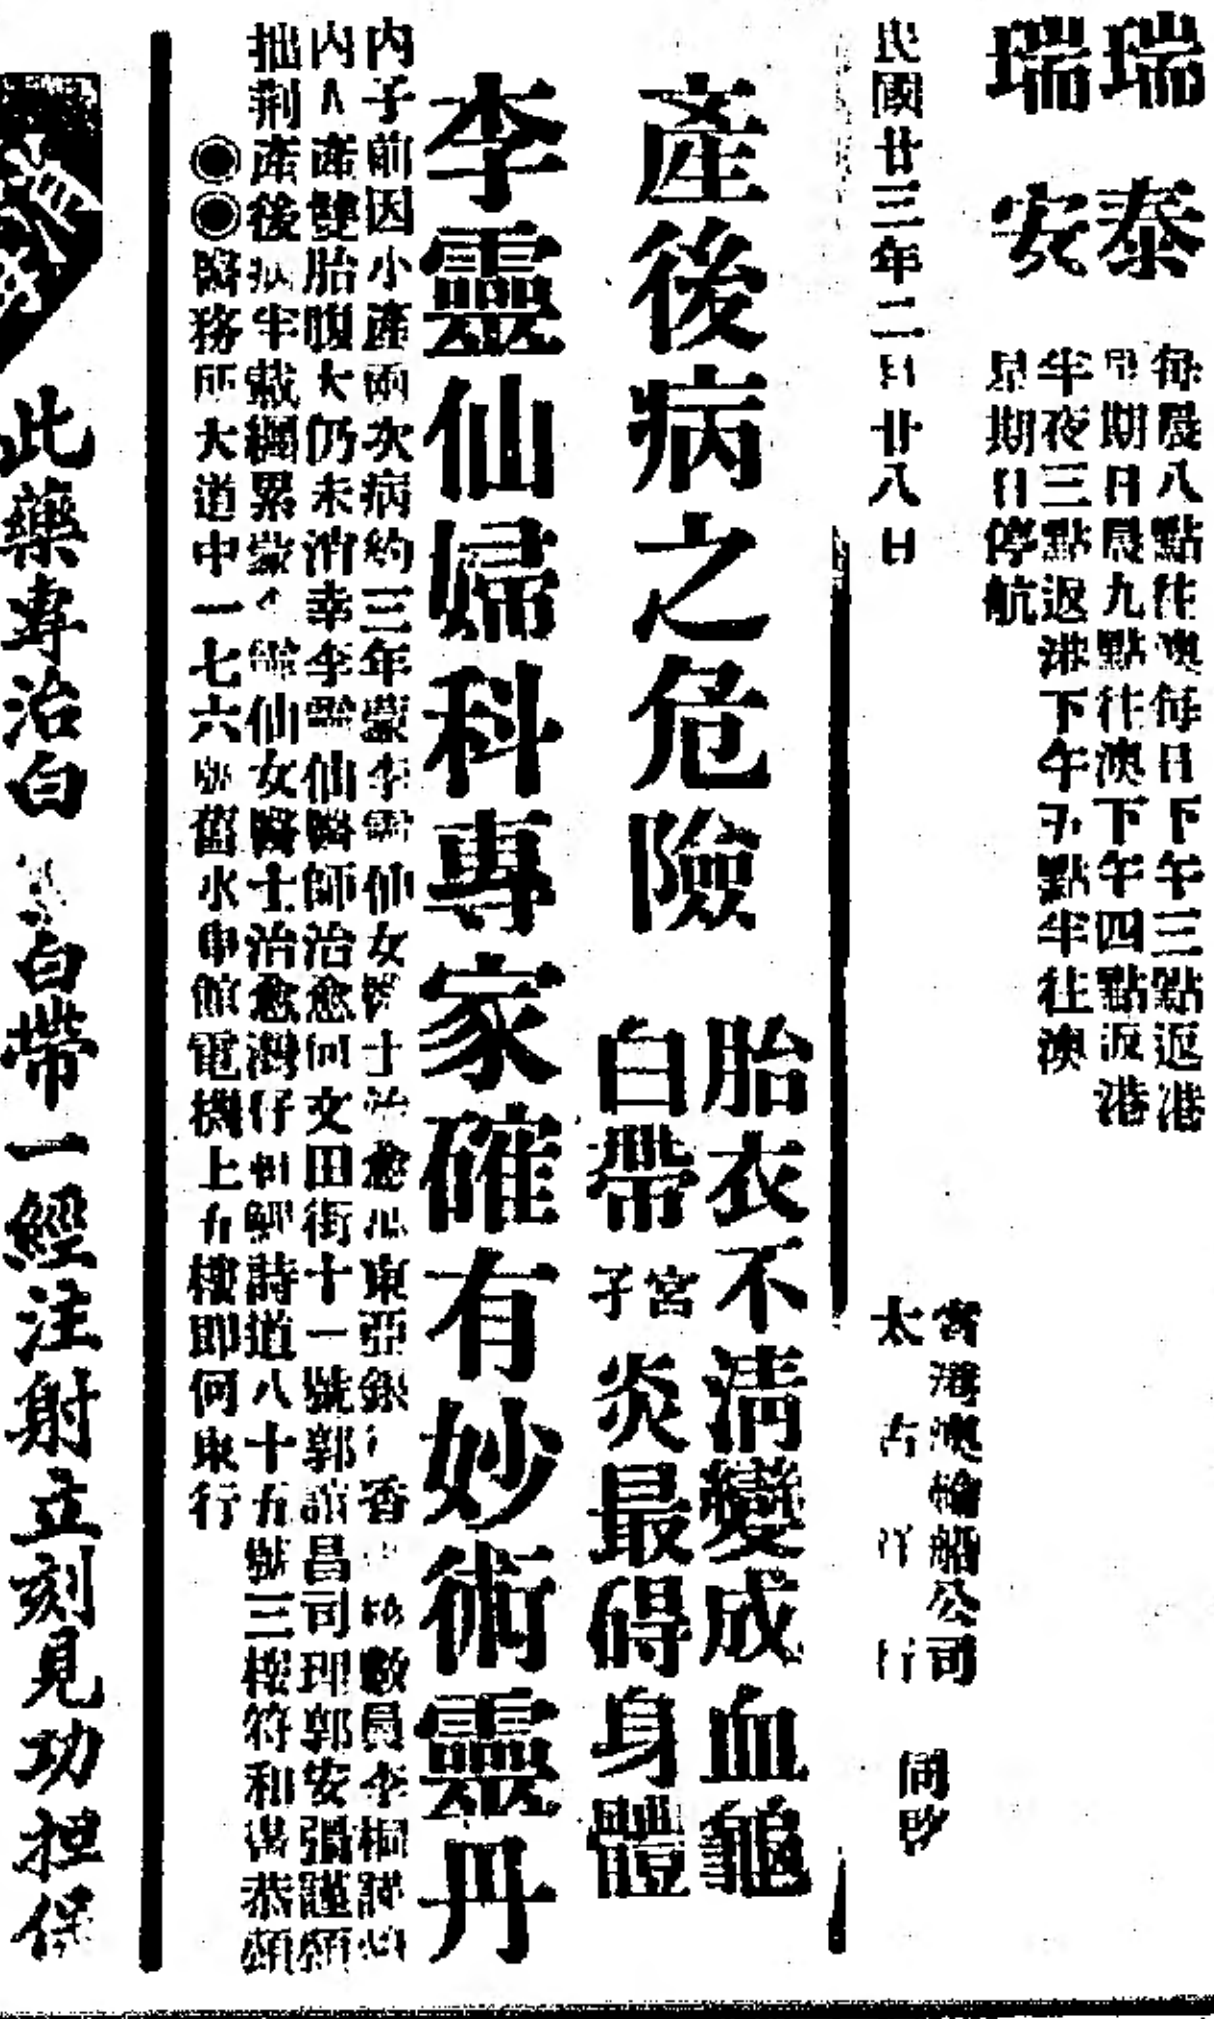 瑞泰
每晨八點往澳每日下午三點返港
星期日晨九點往澳下午四點返港
瑞安
半夜三點返港下午五點半往澳
星期日停航
省港澳輪船公司
太古洋行
同啓
民國廿三年二月廿八日
產後病之危險
胎衣不清變成血龜
白帶子宮炎最碍身體
李靈仙婦科專家確有妙術靈丹
内子前因小產兩次病約三年蒙李靈仙女醫士治愈
東亞銀
香
數員李桐謹頌
内人產雙胎腹大仍未消幸李靈仙醫師治愈何文田街十一號郭誼昌司理郭安張謹頌
拙荆產後病半載纏累蒙李靈仙女醫士治愈灣仔
詩道八十五號三樓符和恭頌
◉◉醫務所大道中一七六號舊水車館電機上五樓即何東行
此藥專治白
白帶一經注射立刻見功担保